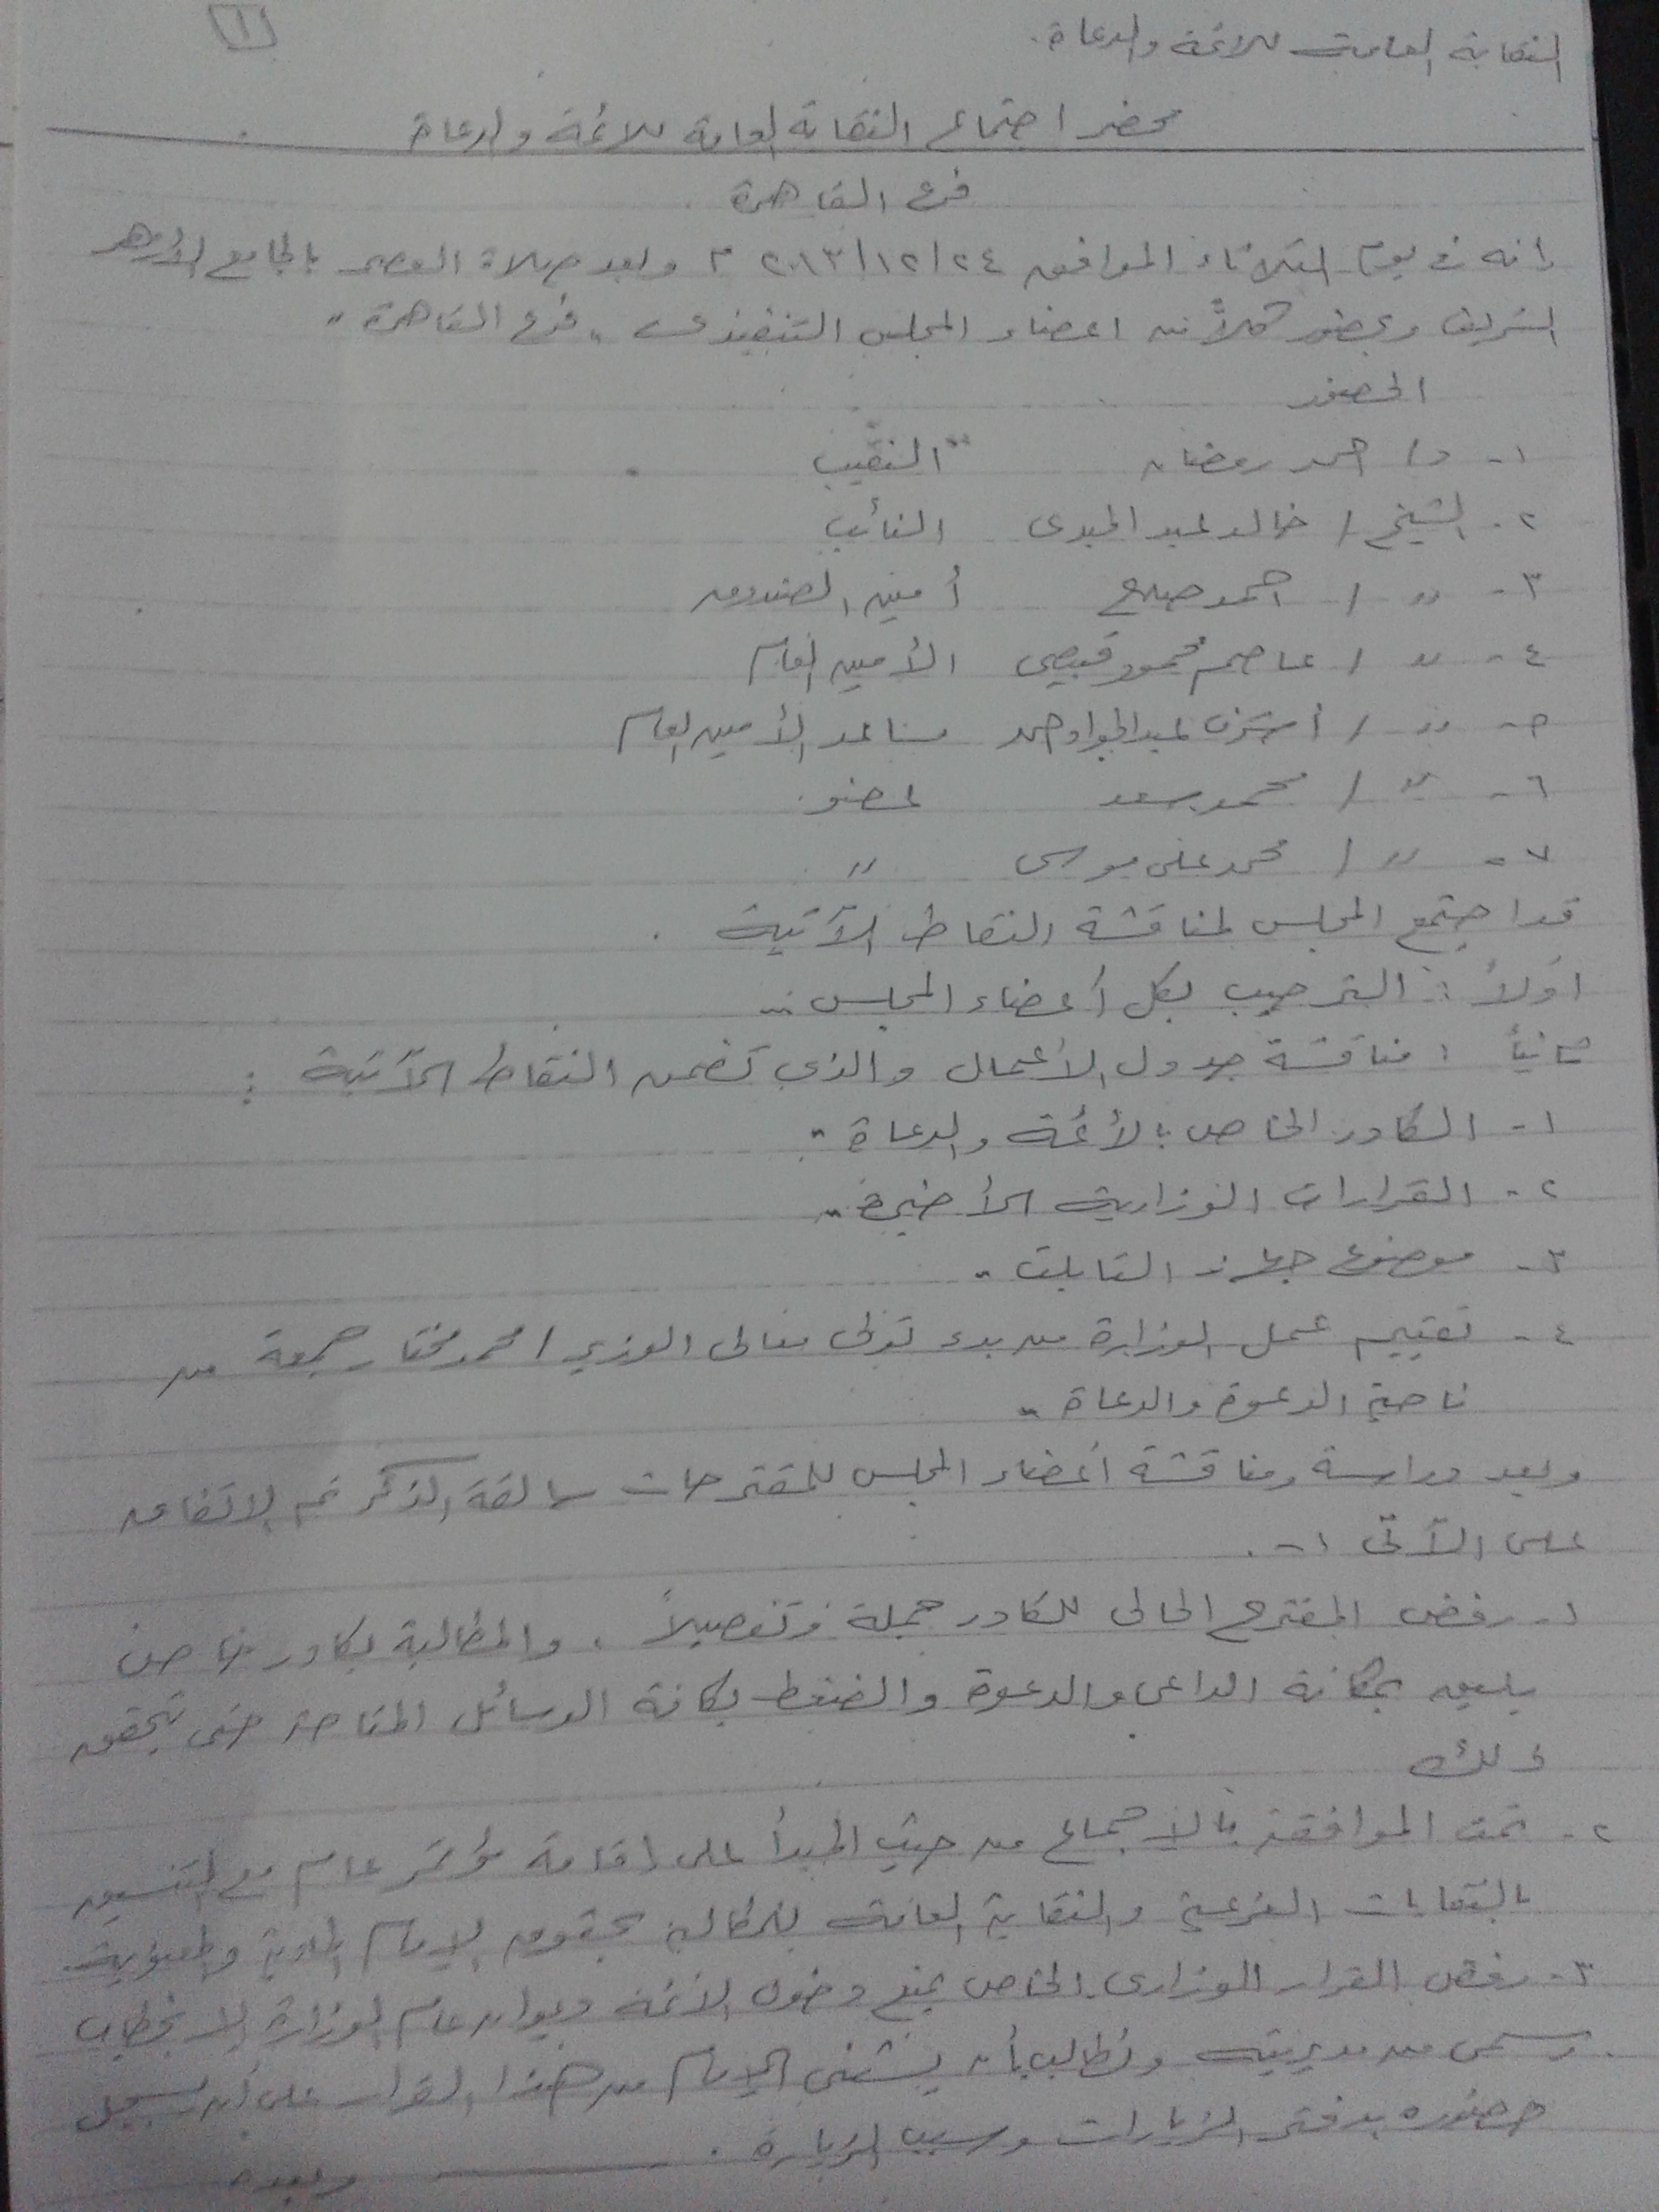 ١
النقابة العامة للائمة والدعاة.
محضر اجتماع النقابة العامة للائمة والدعاة
فرع القاهرة
إنه فى يوم الثلاثاء الموافق ٢٤/١٢/٢٠١٣ م وبعد صلاة العصر بالجامع الأزهر
الشريف وبحضور كلاً من اعضاء المجلس التنفيذى " فرع القاهرة "
الحضور
١- د/ احمد رمضان " النقيب
٢- الشيخ / خالد عبد الجيدى النائب
٣- " / احمد صلاح أمين الصندوق
٤- " / عاصم محمود قبيصى الأمين العام
٥- " / أشرف عبد الجواد احمد مساعد الأمين العام
٦- " / محمد سعد عضو.
٧- " / محمد على موسى "
قد اجتمع المجلس لمناقشة النقاط الآتية .
اولاً : الترحيب بكل أعضاء المجلس ..
ثانياً : مناقشة جدول الأعمال والذى تضمن النقاط الآتية :
١- الكادر الخاص بالأئمة والدعاة .
٢- القرارات الوزارية الأخيرة ..
٣- موضوع جهاز التابلت .
٤- تقييم عمل الوزارة من بدء تولى معالى الوزير / محمد مختار جمعة من
ناحية الدعوة والدعاة .
وبعد دراسة ومناقشة أعضاء المجلس للمقترحات سالفة الذكر تم الاتفاق
على الآتى :-
١- رفض المقترح الحالى للكادر جملة وتفصيلاً ، والمطالبة بكادر خاص
يليق بمكانة الداعى والدعوة والضغط بكافة الوسائل المتاحة حتى يتحقق
ذلك
٢- تمت الموافقة بالاجماع من حيث المبدأ على اقامة مؤتمر عام مع التنسيق
بالنقابات الفرعية والنقابة العامة للمطالبة بحقوق الإمام المادية والمعنوية
٣- رفض القرار الوزارى الخاص بمنع دخول الائمة ديوان عام الوزارة إلا بخطاب
رسمى من مديريته ونطالب بأن يستثنى الإمام من هذا القرار على أن يسجل
حضوره بدفتر الزيارات وسبب الزيارة . وبعده